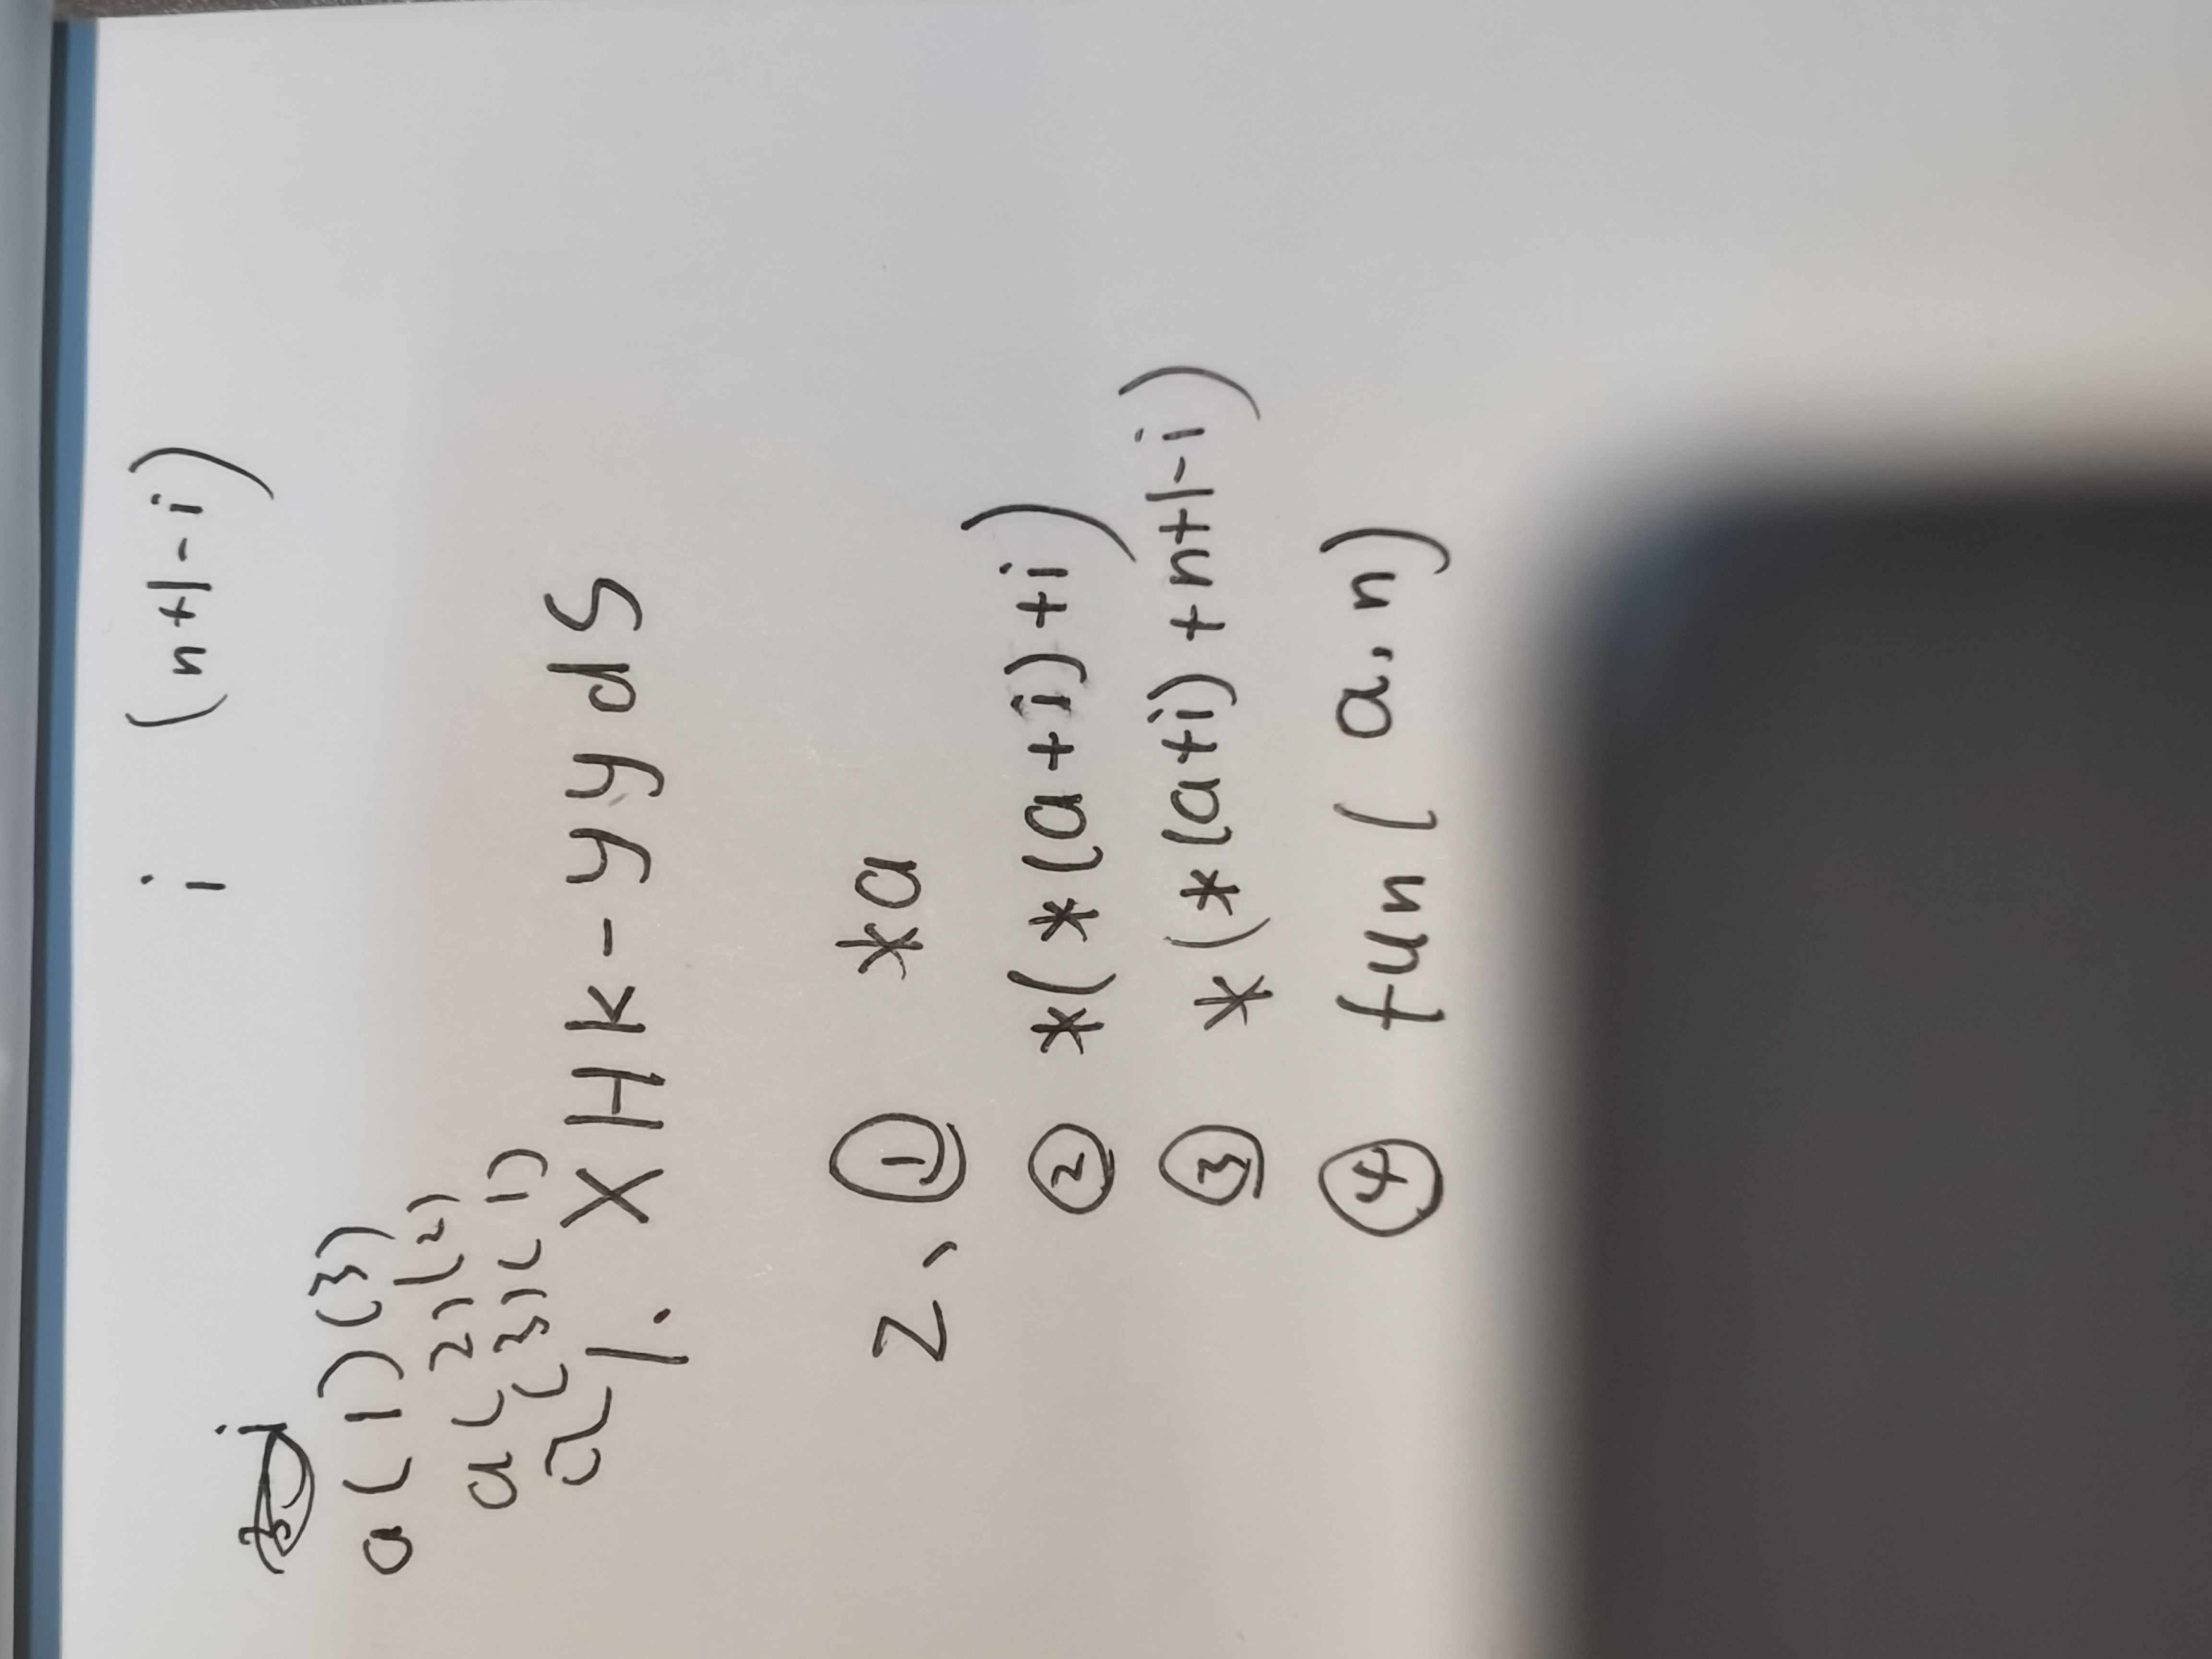 i (n+1-i)
i
a(1)(3)
a(2)(2)
a(3)(1)
1. XHK-yydS
2、① *a
② *(*(a+i)+i)
③ *(*(a+i)+n+1-i)
④ fun(a,n)